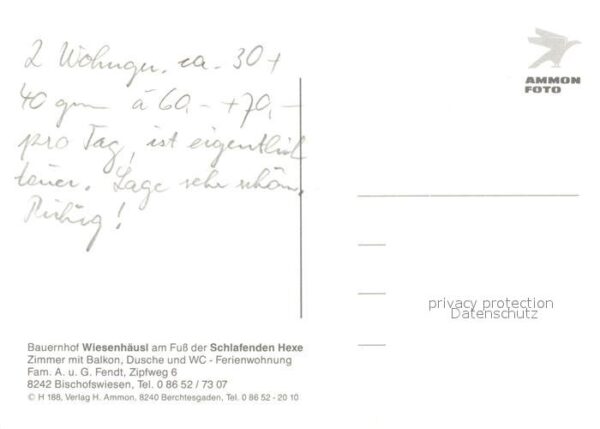 2 Wohngn. ca. 30 +
40 qm à 60,- + 70,-
pro Tag, ist eigentlich
teuer. Lage sehr schön,
!
AMMON
FOTO
privacy protection
Datenschutz
Bauernhof Wiesenhäusl am Fuß der Schlafenden Hexe
Zimmer mit Balkon, Dusche und WC - Ferienwohnung
Fam. A. u. G. Fendt, Zipfweg 6
8242 Bischofswiesen, Tel. 0 86 52 / 73 07
© H 188, Verlag H. Ammon, 8240 Berchtesgaden, Tel. 0 86 52 - 20 10